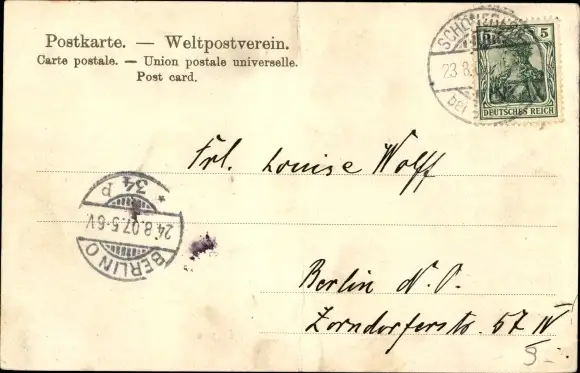 Postkarte. — Weltpostverein.
Carte postale. — Union postale universelle.
Post card.
23.8.
bei
5 5
DEUTSCHES REICH
Frl. Louise Wolff
* 34 P
24.8.07.5-6V.
BERLIN O
Berlin N.O.
Zorndorferstr. 57 IV